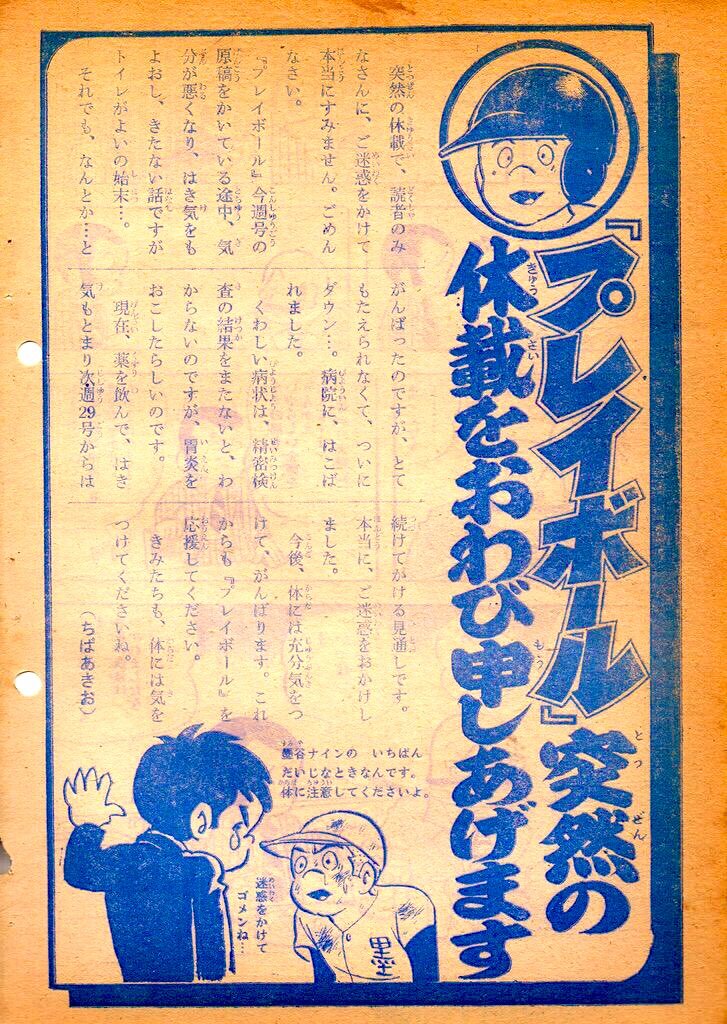 『プレイボール』突然の
休載をおわび申しあげます
突然の休載で、読者のみ
なさんに、ご迷惑をかけて
本当にすみません。ごめん
なさい。
『プレイボール』今週号の
原稿をかいている途中、気
分が悪くなり、はき気をも
よおし、きたない話ですが
トイレがよいの始末…。
それでも、なんとか…と
がんばったのですが、とて
もたえられなくて、ついに
ダウン…。病院に、はこば
れました。
くわしい病状は、精密検
査の結果をまたないと、わ
からないのですが、胃炎を
おこしたらしいのです。
現在、薬を飲んで、はき
気もとまり次週29号からは
続けてかける見通しです。
本当に、ご迷惑をおかけし
ました。
今後、体には充分気をつ
けて、がんばります。これ
からも『プレイボール』を
応援してください。
きみたちも、体には気を
つけてくださいね。
（ちばあきお）
墨谷ナインの いちばん
だいじなときなんです。
体に注意してくださいよ。
迷惑をかけて
ゴメンね…
墨